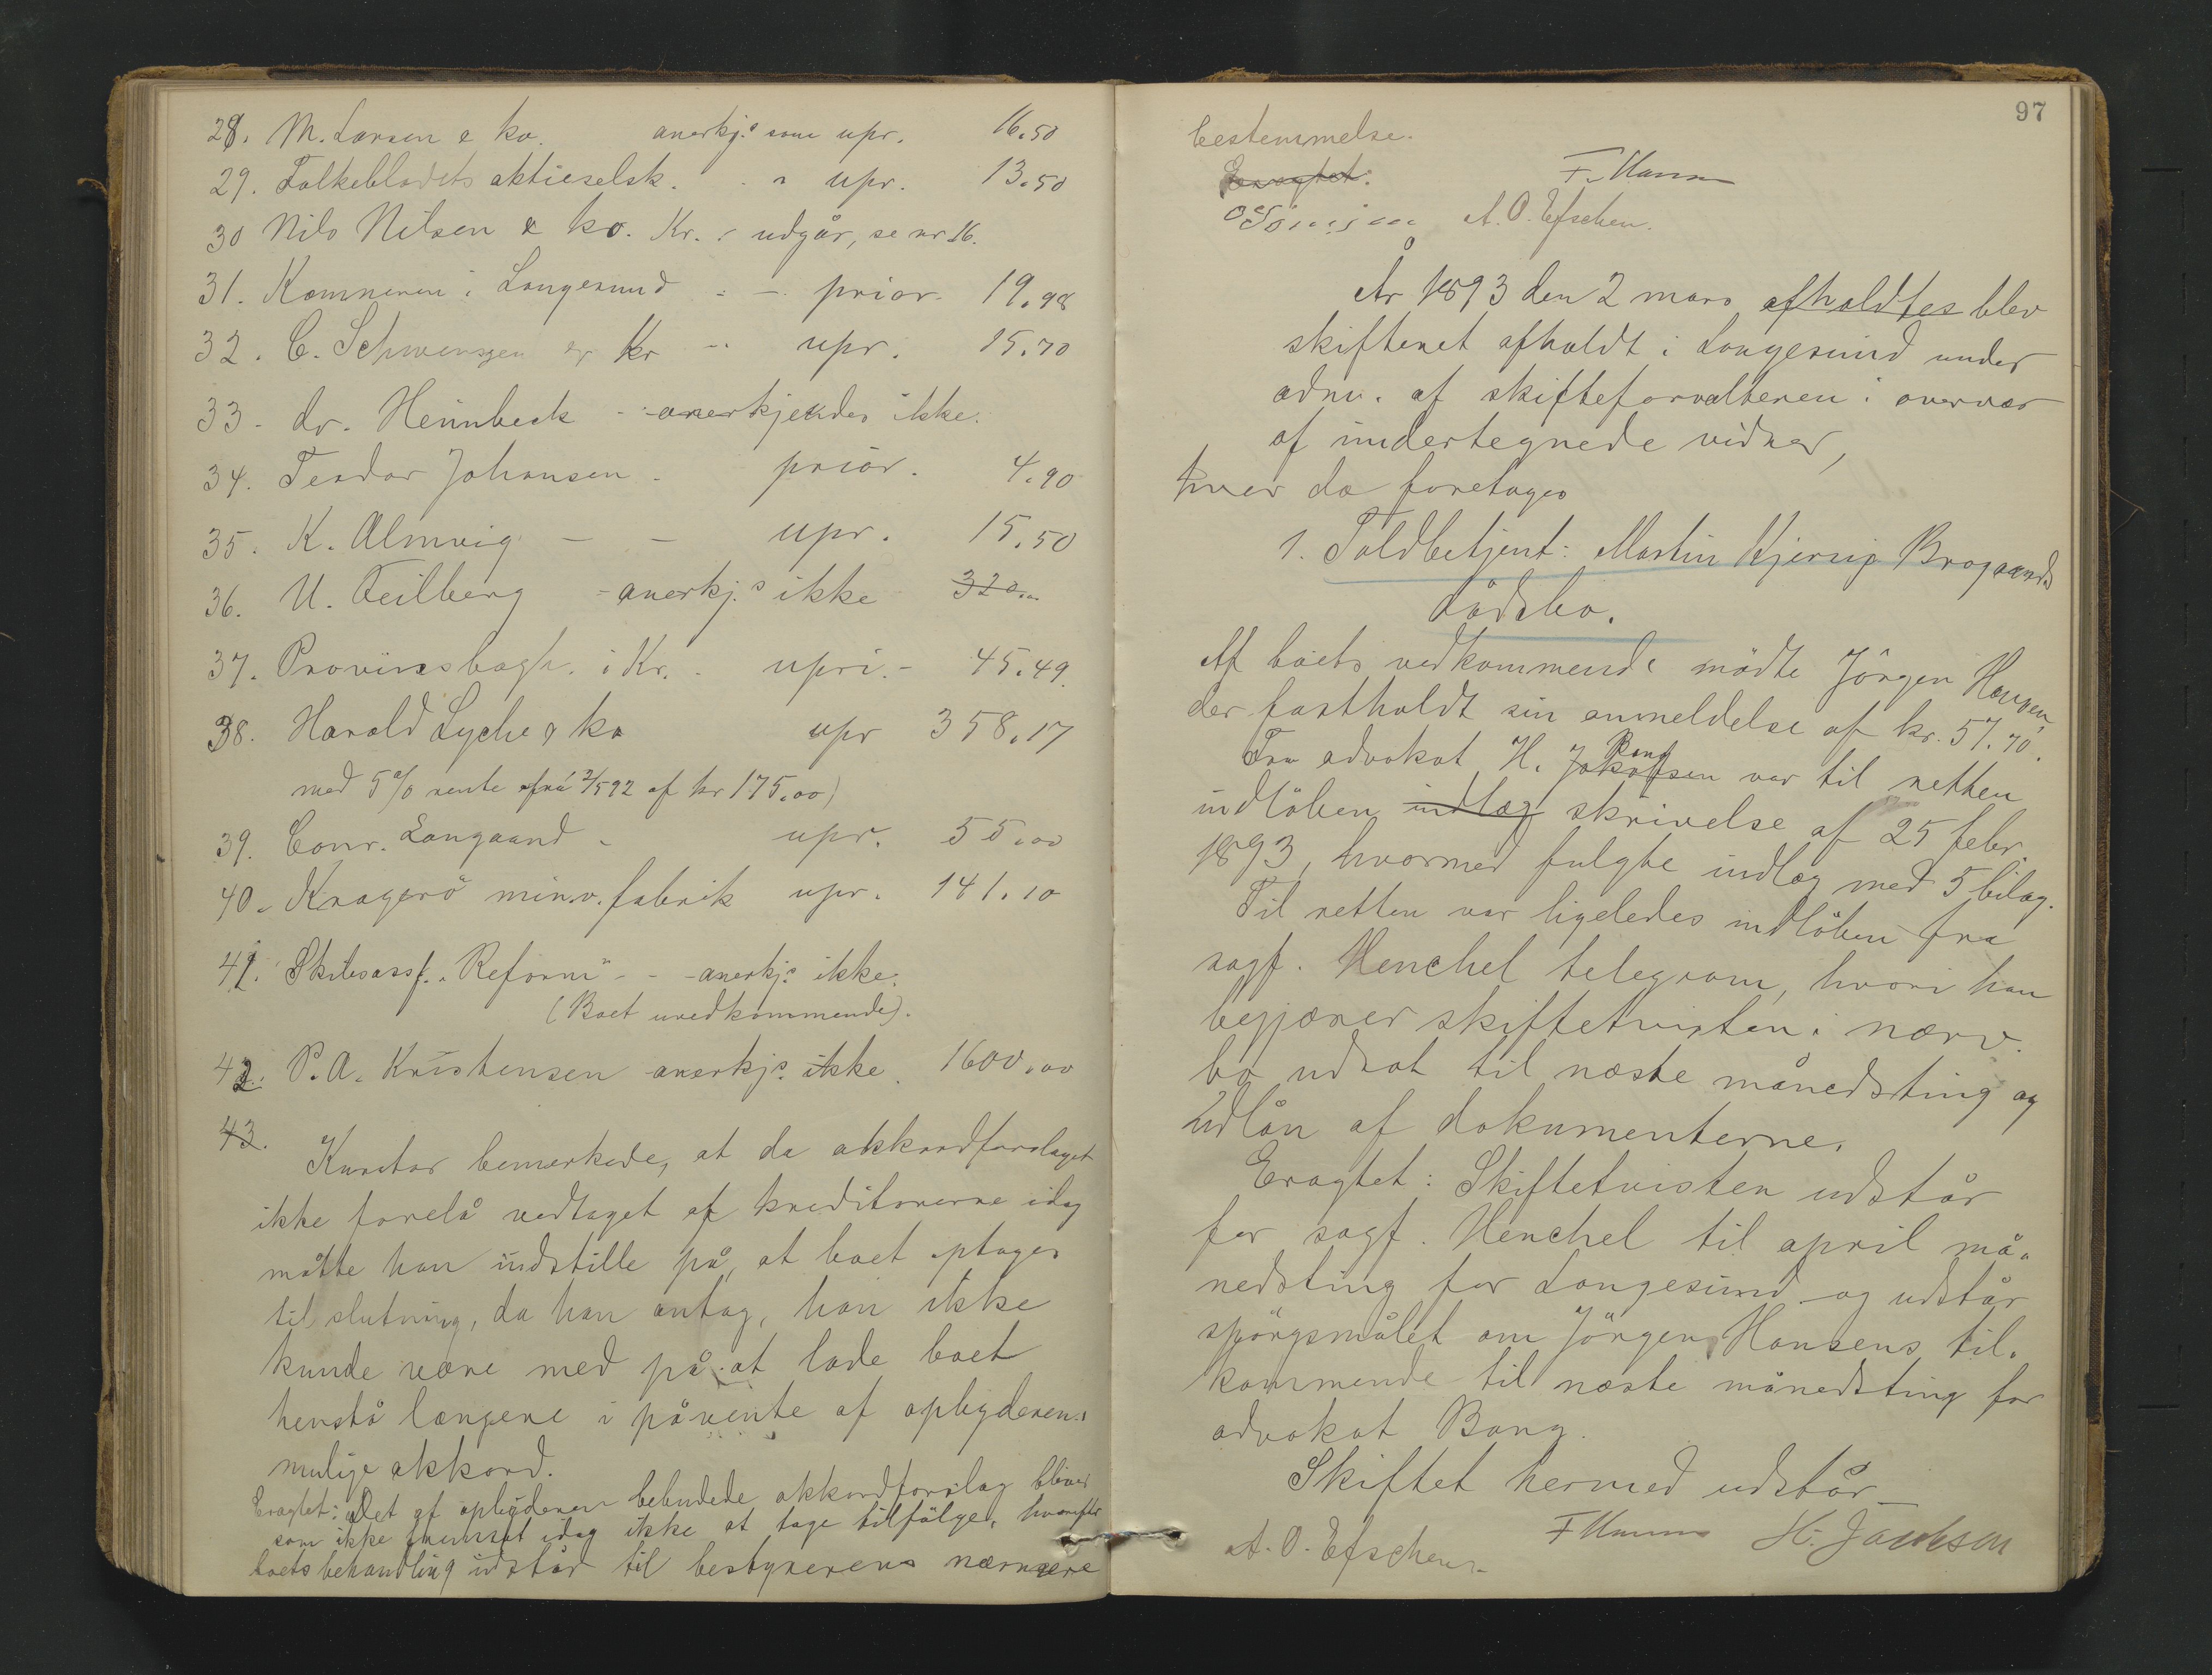 28. M. Larsen & ko. anerkj.s som upr. 16.50
29. Folkebladets aktieselsk. - " upr. 13.50
30 Nils Nilsen & ko. Kr. : udgår, se nr 16.
31. Kæmneren i Langesund : - prior. 19.98
32. C. Schwenzen Kr - upr. 15.70
33 - dr. Heimbeck - anerkjendes ikke.
34. Teodor Johansen - prior. 4.90
35. K. Almvig - - upr. 15.50
36. U. Feilberg - anerkj.s ikke 320...
37. Provinsbogh. i Kr. - upri. - 45.49.
38. Harald Lyche & ko upr 358.17
med 5 % rente fra 2/5 92 af kr 175.00)
39. Conr. Langaard - upr. 55.00
40. Kragerö min.v. fabrik upr. 141.10
41. Skibsassf. "Reform" - - anerkj.s ikke.
(Boet uvedkommende).
42. P. A. Kristensen anerkj.s ikke. 1600.00
43.
Kurator bemerkede, at da akkordforslaget
ikke forelå vedtaget af kreditorerne idag
måtte han indstille på, at boet optages
til slutning, da han antog, han ikke
kunde være med på at lade boet
henstå længere i påvente af opbyderens
mulige akkord.
Eragtet: Det af opbyderen bebudede akkordforslag bliver
som ikke fremsat idag ikke at tage tilfölge, hvorefter
boets behandling udstår til bestyrerens nærmere
97
bestemmelse.
Eragtet.
A. O. Efschen.
År 1893 den 2 mars afholdtes blev
skifteret afholdt i Langesund under
adm. af skifteforvalteren i overvær
af undertegnede vidner,
hvor da foretages
1. Toldbetjent: Martin Kjersip Brogaards
dödsbo.
Af boets vedkommende mödte Jörgen Hansen,
der fastholdt sin anmeldelse af kr. 57.70.
Fra advokat H. Jakobsen Bang var til retten
indlöben indlæg skrivelse af 25 febr.
1893, hvormed fulgte indlæg med 5 bilag.
Til retten var ligeledes indlöben fra
sagf. Henchel telegram, hvori han
begjærer skiftetvisten i nærv.
bo udsat til næste månedsting og
udlån af dokumenterne.
Eragtet: Skiftetvisten udstår
for sagf. Henchel til april må-
nedsting for Langesund og udstår
spörgsmålet om Jörgen Hansens til-
kommende til næste månedsting for
advokat Bang.
Skiftet hermed udstår
A. O. Efschen H. Jacobsen